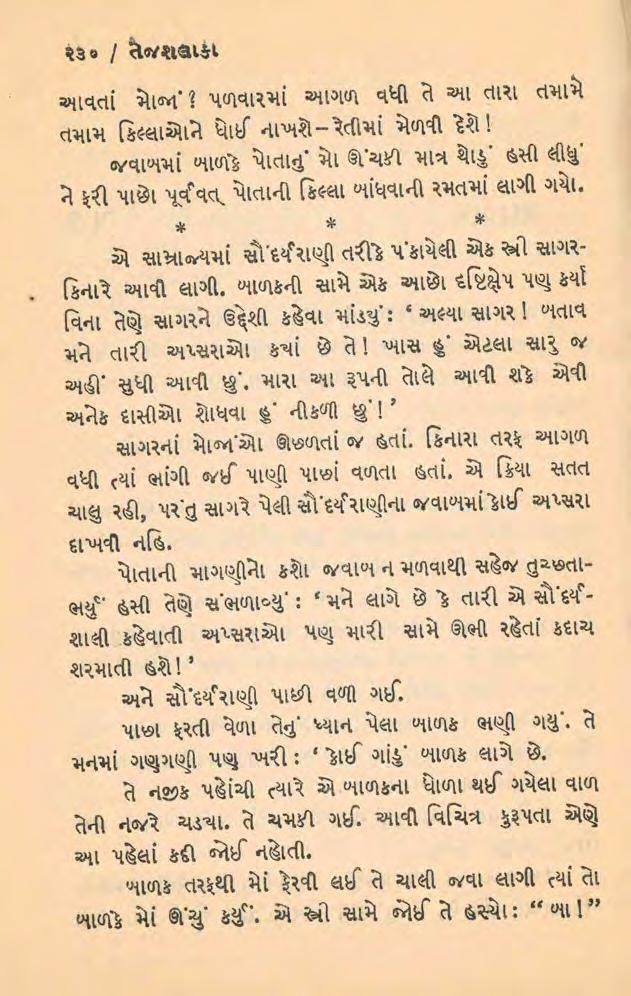 ૨૩૦ / તેજશલાકા
આવતાં મોજાં ? પળવારમાં આગળ વધી તે આ તારા તમામે
તમામ કિલ્લાઓને ધોઈ નાખશે – રેતીમાં મેળવી દેશે !
જવાબમાં બાળકે પોતાનું મો ઊંચકી માત્ર થોડું હસી લીધું
ને ફરી પાછો પૂર્વવત્ પોતાની કિલ્લા બાંધવાની રમતમાં લાગી ગયો.
* * *
એ સામ્રાજ્યમાં સૌંદર્યરાણી તરીકે પંકાયેલી એક સ્ત્રી સાગર-
કિનારે આવી લાગી. બાળકની સામે એક આછો દૃષ્ટિક્ષેપ પણ કર્યા
વિના તેણે સાગરને ઉદ્દેશી કહેવા માંડ્યું : ‘ અલ્યા સાગર ! બતાવ
મને તારી અપ્સરાઓ ક્યાં છે તે ! ખાસ હું એટલા સારુ જ
અહીં સુધી આવી છું. મારા આ રૂપની તોલે આવી શકે એવી
અનેક દાસીઓ શોધવા હું નીકળી છું ! ’
સાગરનાં મોજાંઓ ઊછળતાં જ હતાં. કિનારા તરફ આગળ
વધી ત્યાં ભાંગી જઈ પાણી પાછાં વળતા હતાં. એ ક્રિયા સતત
ચાલુ રહી, પરંતુ સાગરે પેલી સૌંદર્યરાણીના જવાબમાં કોઈ અપ્સરા
દાખવી નહિ.
પોતાની માગણીનો કશો જવાબ ન મળવાથી સહેજ તુચ્છતા-
ભર્યું હસી તેણે સંભળાવ્યું : ‘ મને લાગે છે કે તારી એ સૌંદર્ય-
શાલી કહેવાતી અપ્સરાઓ પણ મારી સામે ઊભી રહેતાં કદાચ
શરમાતી હશે ! ’
અને સૌંદર્યરાણી પાછી વળી ગઈ.
પાછા ફરતી વેળા તેનું ધ્યાન પેલા બાળક ભણી ગયું. તે
મનમાં ગણગણી પણ ખરી : ‘ કોઈ ગાંડું બાળક લાગે છે.
તે નજીક પહોંચી ત્યારે એ બાળકના ધોળા થઈ ગયેલા વાળ
તેની નજરે ચડ્યા. તે ચમકી ગઈ. આવી વિચિત્ર કુરૂપતા એણે
આ પહેલાં કદી જોઈ નહોતી.
બાળક તરફથી મોં ફેરવી લઈ તે ચાલી જવા લાગી ત્યાં તો
બાળકે મોં ઊંચું કર્યું. એ સ્ત્રી સામે જોઈ તે હસ્યો : “ બા ! ”